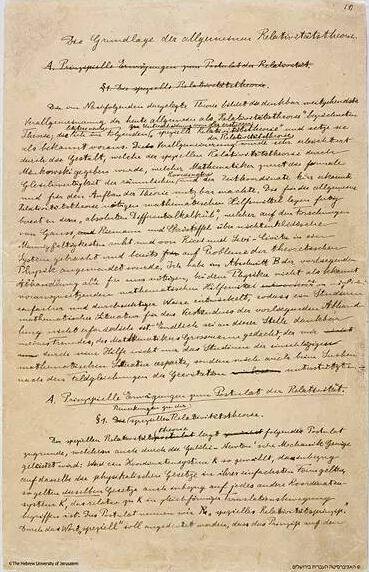 Die Grundlage der allgemeinen Relativitätstheorie.
A. Prinzipielle Erwägungen zum Postulat der Relativität.
§1. Die spezielle Relativitätstheorie.
Die im Nachfolgenden dargelegte Theorie bildet die denkbar weitgehendste
Verallgemeinerung der heute allgemein als "Relativitätstheorie" bezeichneten
Theorie; die letztere nenne ich im folgenden zur Unterscheidung von der ersteren "spezielle Relativitätstheorie" und setze sie
als bekannt voraus. Die Verallgemeinerung der Relativitätstheorie wurde sehr erleichtert
durch die Gestalt, welche der speziellen Relativitätstheorie durch
Minkowski gegeben wurde, welcher Mathematiker zuerst die formale
Gleichwertigkeit der räumlichen Koordinaten und der Zeitkoordinate klar erkannte
und für den Aufbau der Theorie nutzbar machte. Die für die allgemeine
Relativitätstheorie nötigen mathematischen Hilfsmittel lagen fertig
bereit in dem "absoluten Differentialkalkül", welcher auf den Forschungen
von Gauss, Riemann und Christoffel über nichteuklidische
Mannigfaltigkeiten ruht und von Ricci und Levi-Civita in ein
System gebracht und bereits auf Probleme der theoretischen
Physik angewendet wurde. Ich habe im Abschnitt B der vorliegenden
Abhandlung alle für uns nötigen, bei dem Physiker nicht als bekannt
vorauszusetzenden mathematischen Hilfsmittel in möglichst
einfacher und durchsichtiger Weise entwickelt, sodass ein Studium
mathematischer Literatur für das Verständnis der vorliegenden Abhand
lung nicht erforderlich ist. Endlich sei an dieser Stelle dankbar
meines Freundes, des Mathematikers Grossmann gedacht, der mir
durch seine Hilfe nicht nur das Studium der einschlägigen
mathematischen Literatur ersparte, sondern mich auch beim Suchen
nach den Feldgleichungen der Gravitation unterstützte.
A. Prinzipielle Erwägungen zum Postulat der Relativität.
Bemerkungen zu der
§1. Die spezielle Relativitätstheorie.
Der speziellen Relativitätstheorie liegt folgendes Postulat
zugrunde, welchem auch durch die Galilei-Newton'sche Mechanik Genüge
geleistet wird: Wird ein Koordinatensystem K so gewählt, dass in bezug
auf dasselbe die physikalischen Gesetze in ihrer einfachsten Form gelten,
so gelten dieselben Gesetze auch in bezug auf jedes andere Koordinaten-
system K', das relativ zu K in gleichförmiger Translationsbewegung
begriffen ist. Dies Postulat nennen wir "spezielles Relativitätsprinzip".
Durch das Wort "speziell" soll angedeutet werden, dass das Prinzip auf den
© The Hebrew University of Jerusalem
© האוניברסיטה העברית בירושלים